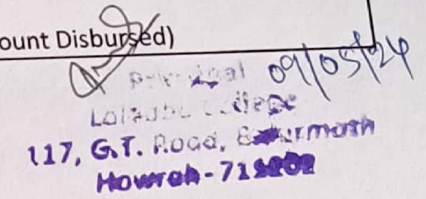 ount Disbursed)
09/05/24
Principal
Lalbaba College
117, G.T. Road,
Howrah-711202